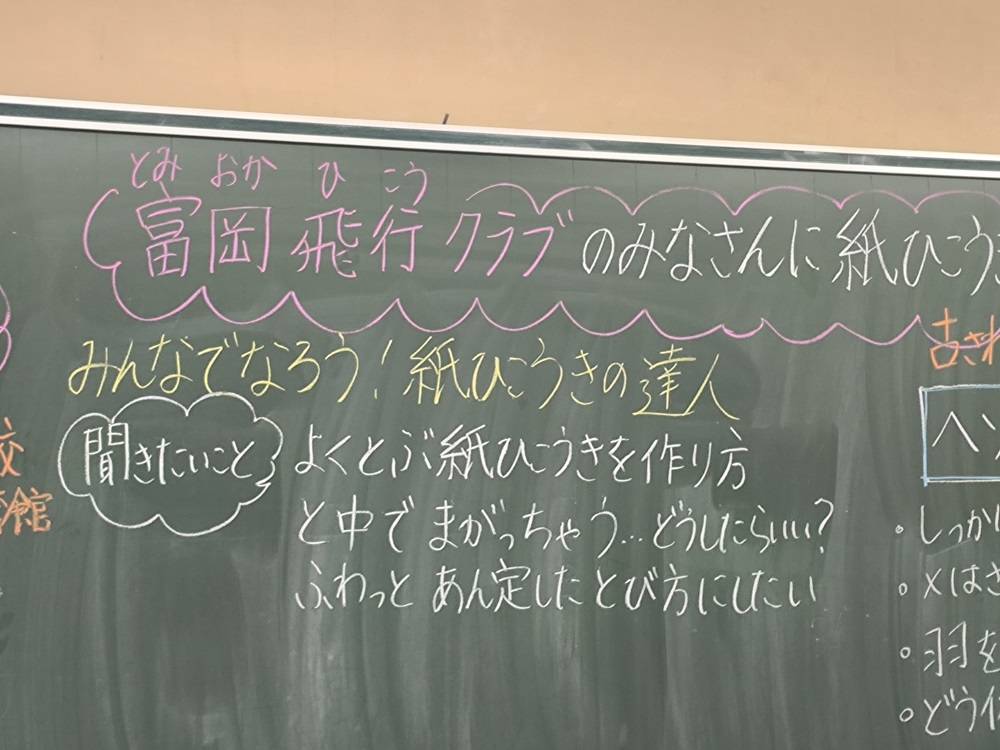 とみ おか ひ こう
富岡 飛行クラブのみなさんに紙ひこう
みんなでなろう!紙ひこうきの達人
聞きたいこと
よくとぶ紙ひこうきを作り方
と中で まがっちゃう…どうしたらいい?
ふわっと あん定したとび方にしたい
校
館
古さ
ヘ
・しっか
。×はさ
。羽を
。どう